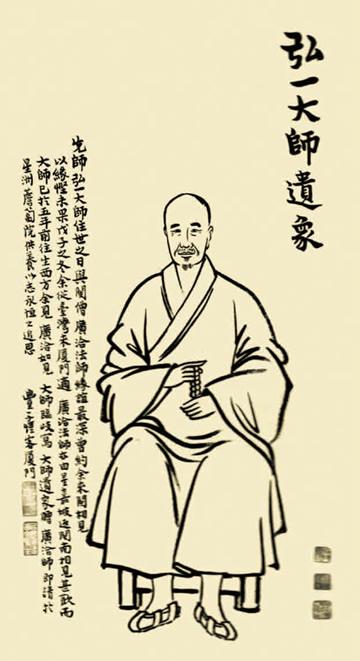 弘一大師遺象
先師弘一大師住世之日與閩僧 廣洽法師緣誼最深曾約余來閩相見
以緣慳未果戊子之冬余從臺灣來厦門適 廣洽法師亦由星嘉坡返閩南相見甚歡而
大師已於五年前往生西方余見 廣洽如見 大師臨歧寫 大師遺象贈 廣洽師即請於
星洲薝蔔院供養以志永恒之追思 豐子愷客厦門